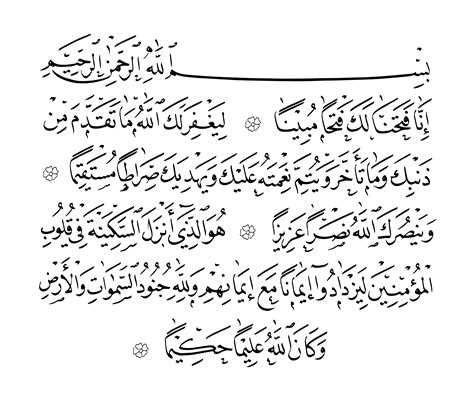 بِسْمِ ٱللَّهِ ٱلرَّحْمَٰنِ ٱلرَّحِيمِ
إِنَّا فَتَحْنَا لَكَ فَتْحًا مُّبِينًا ۞ لِيَغْفِرَ لَكَ ٱللَّهُ مَا تَقَدَّمَ مِن
ذَنۢبِكَ وَمَا تَأَخَّرَ وَيُتِمَّ نِعْمَتَهُ عَلَيْكَ وَيَهْدِيَكَ صِرَاطًا مُّسْتَقِيمًا ۞
وَيَنصُرَكَ ٱللَّهُ نَصْرًا عَزِيزًا ۞ هُوَ ٱلَّذِي أَنزَلَ ٱلسَّكِينَةَ فِي قُلُوبِ
ٱلْمُؤْمِنِينَ لِيَزْدَادُوٓا إِيمَانًا مَّعَ إِيمَانِهِمْ وَلِلَّهِ جُنُودُ ٱلسَّمَٰوَاتِ وَٱلْأَرْضِ
وَكَانَ ٱللَّهُ عَلِيمًا حَكِيمًا ۞